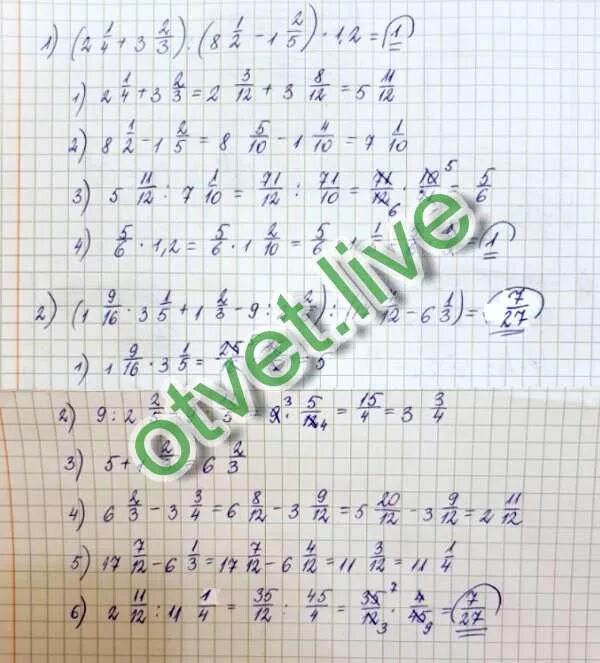 1) (2 1/4 + 3 2/3) : (8 1/2 - 1 2/5) · 1,2 = 1
1) 2 1/4 + 3 2/3 = 2 3/12 + 3 8/12 = 5 11/12
2) 8 1/2 - 1 2/5 = 8 5/10 - 1 4/10 = 7 1/10
3) 5 11/12 : 7 1/10 = 71/12 : 71/10 = 71/12 6 · 10 5/ = 5/6
4) 5/6 · 1,2 = 5/6 · 1 2/10 = 5/6 · 1 = 1
2) (1 9/16 · 3 1/5 + 1 2/3 - 9 : 2/ ) : ( /12 - 6 1/3) = 7/27
1) 1 9/16 · 3 1/5 = 25/ = 5
2) 9 : 2 2/5 = 9 3 · 5/12 4 = 15/4 = 3 3/4
3) 5 + 1 2/ 6 2/3
4) 6 2/3 - 3 3/4 = 6 8/12 - 3 9/12 = 5 20/12 - 3 9/12 = 2 11/12
5) 17 7/12 - 6 1/3 = 17 7/12 - 6 4/12 = 11 3/12 = 11 1/4
6) 2 11/12 : 11 1/4 = 35/12 : 45/4 = 35 7/12 3 · 4/45 9 = 7/27
otvet.live